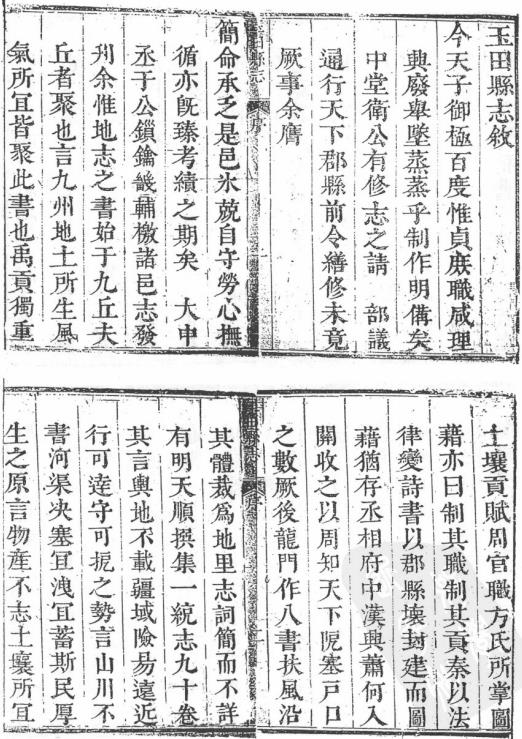 玉田縣志敘
今天子御極百度惟貞庶職咸理
興廢舉墜蒸蒸乎制作明備矣
中堂衛公有修志之請　部議
通行天下郡縣前令繕修未竟
厥事余膺
簡命承乏是邑氷兢自守勞心撫
循亦旣臻考績之期矣　大中
丞于公鎖鑰畿輔檄諸邑志發
州余惟地志之書始于九丘夫
丘者聚也言九州地土所生風
氣所宜皆聚此書也禹貢獨重
土壤貢賦周官職方氏所掌圖
藉亦曰制其職制其貢秦以法
律變詩書以郡縣壞封建而圖
藉猶存丞相府中漢興蕭何入
關收之以周知天下阨塞戸口
之數厥後龍門作八書扶風沿
其體裁爲地里志詞簡而不詳
有明天順撰集一統志九十卷
其言輿地不載疆域險易遠近
行可逹守可扼之勢言山川不
書河渠决塞宜洩宜蓄斯民厚
生之原言物産不志土壤所宜